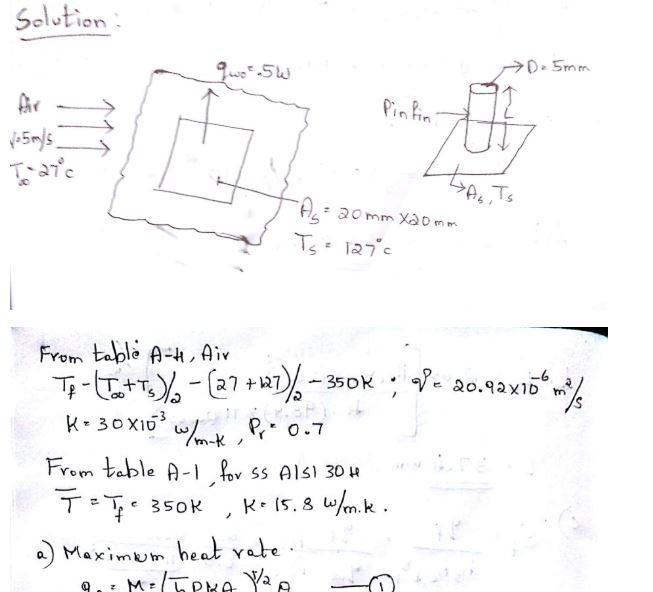 Solution:
q_wo = .5W
D = 5mm
Air
Pin fin
L
V=5m/s
T∞ = 27°C
As, Ts
As = 20mm X20mm
Ts = 127°C
From table A-4, Air
Tf - (T∞+Ts)/2 - (27+127)/2 - 350K ; ν = 20.92x10^-6 m²/s
K = 30X10^-3 w/m-k, Pr = 0.7
From table A-1, for ss AISI 304
T̄ = Tf = 350K, K = 15.8 W/m.k.
a) Maximum heat rate.
= M = (h̄PKA )^1/2 θ —①